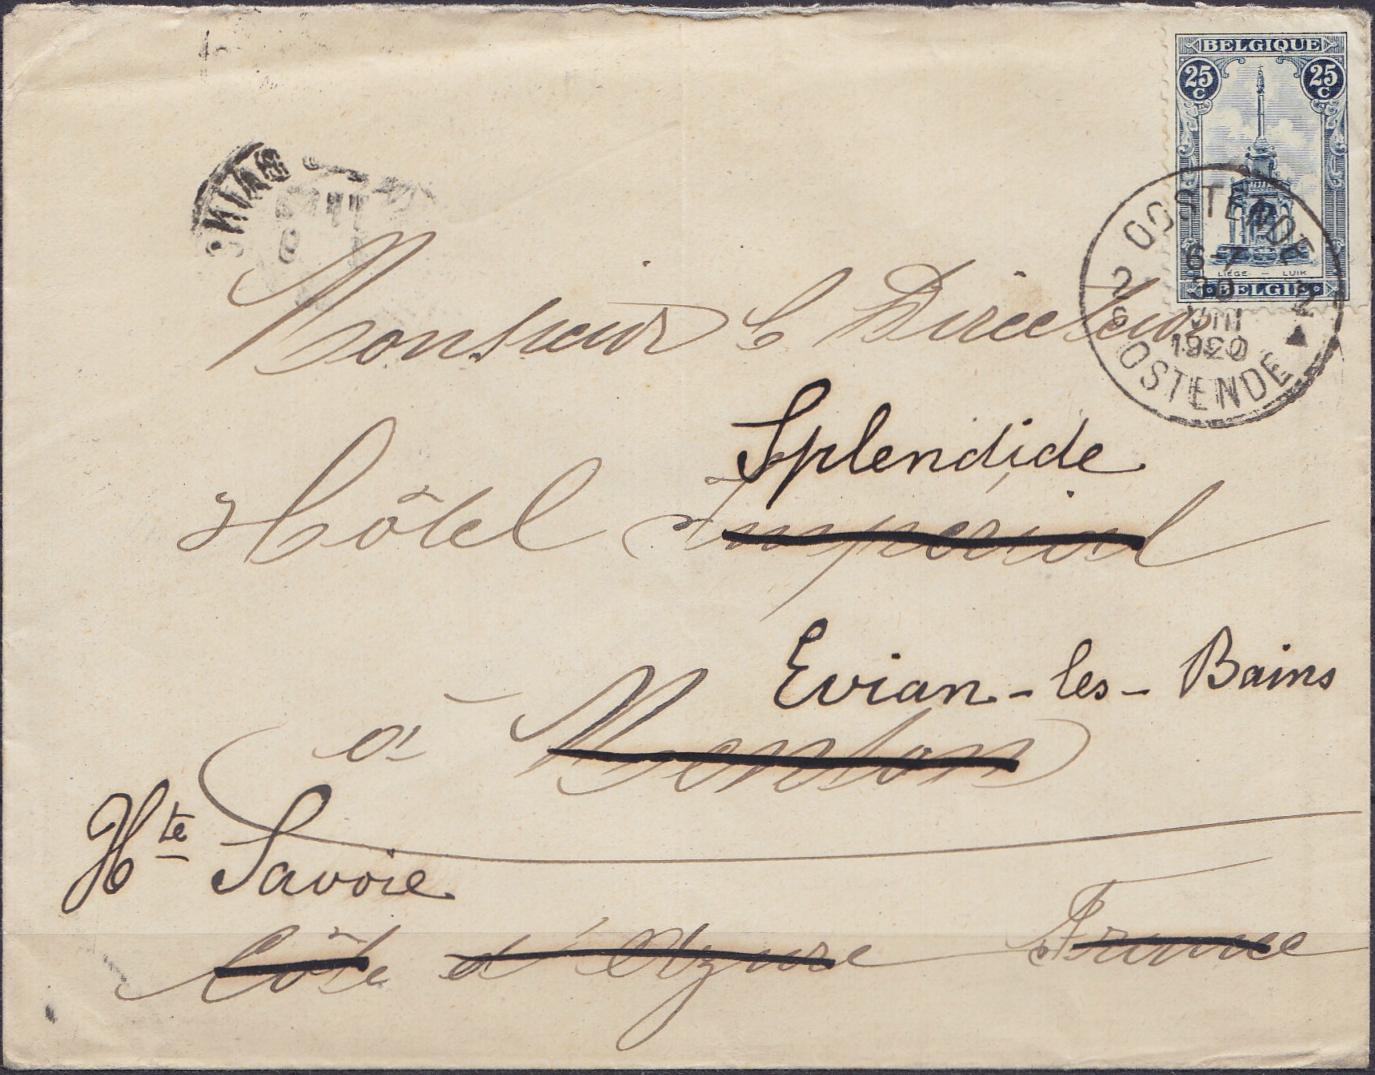 BELGIQUE
25 C 25 C
LIÉGE — LUIK
BELGIË
OOSTENDE
2 2
6-7
VIII
1920
OSTENDE
Monsieur le Directeur
Splendide
Hôtel Impérial
Evian-les-Bains
à Menton
Hte Savoie
Côte d'Azure France